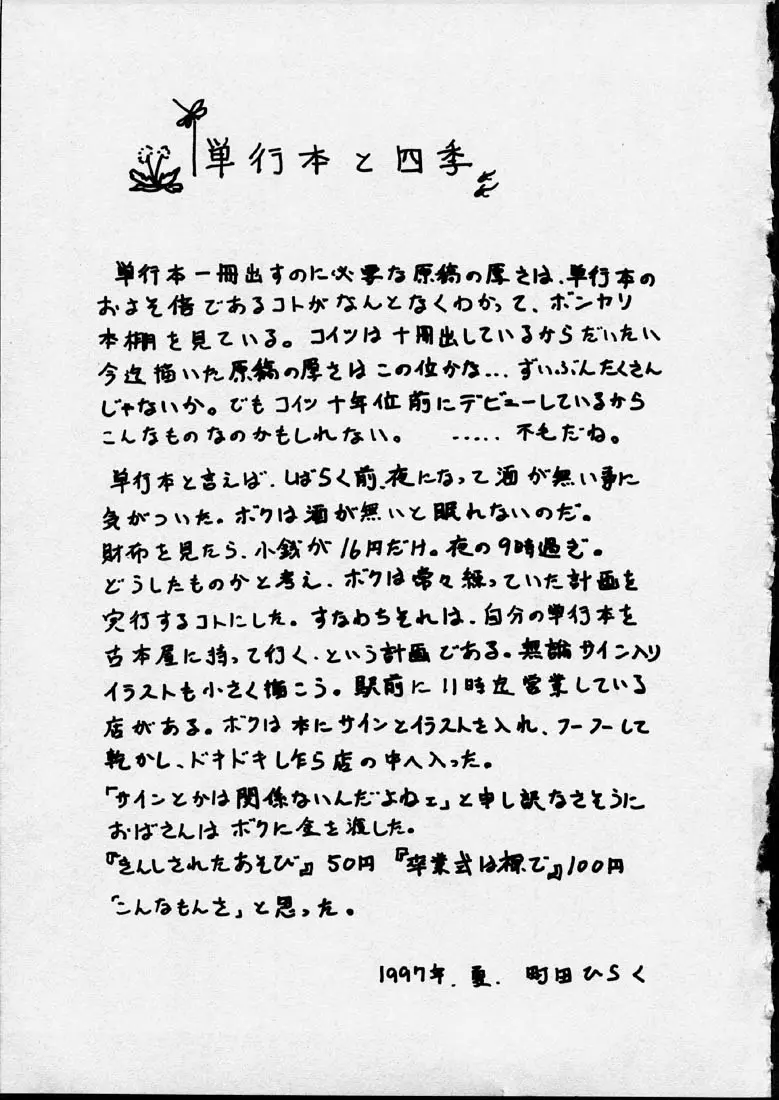 単行本と四季
単行本一冊出すのに必要な原稿の厚さは、単行本の
およそ倍であるコトがなんとなくわかって、ボンヤリ
本棚を見ている。コイツは十冊出しているからだいたい
今迄描いた原稿の厚さはこの位かな... ずいぶんたくさん
じゃないか。でもコイツ十年位前にデビューしているから
こんなものなのかもしれない。 ..... 不毛だね。
単行本と言えば、しばらく前、夜になって酒が無い事に
気がついた。ボクは酒が無いと眠れないのだ。
財布を見たら、小銭が16円だけ。夜の9時過ぎ。
どうしたものかと考え、ボクは常々練っていた計画を
実行するコトにした。すなわちそれは、自分の単行本を
古本屋に持って行く、という計画である。無論サイン入り
イラストも小さく描こう。駅前に11時迄営業している
店がある。ボクは本にサインとイラストを入れ、フーフーして
乾かし、ドキドキし乍ら店の中へ入った。
「サインとかは関係ないんだよねェ」と申し訳なさそうに
おばさんはボクに金を渡した。
『きんしされたあそび』50円 『卒業式は裸で』100円
「こんなもんさ」と思った。
1997年.夏. 町田ひらく